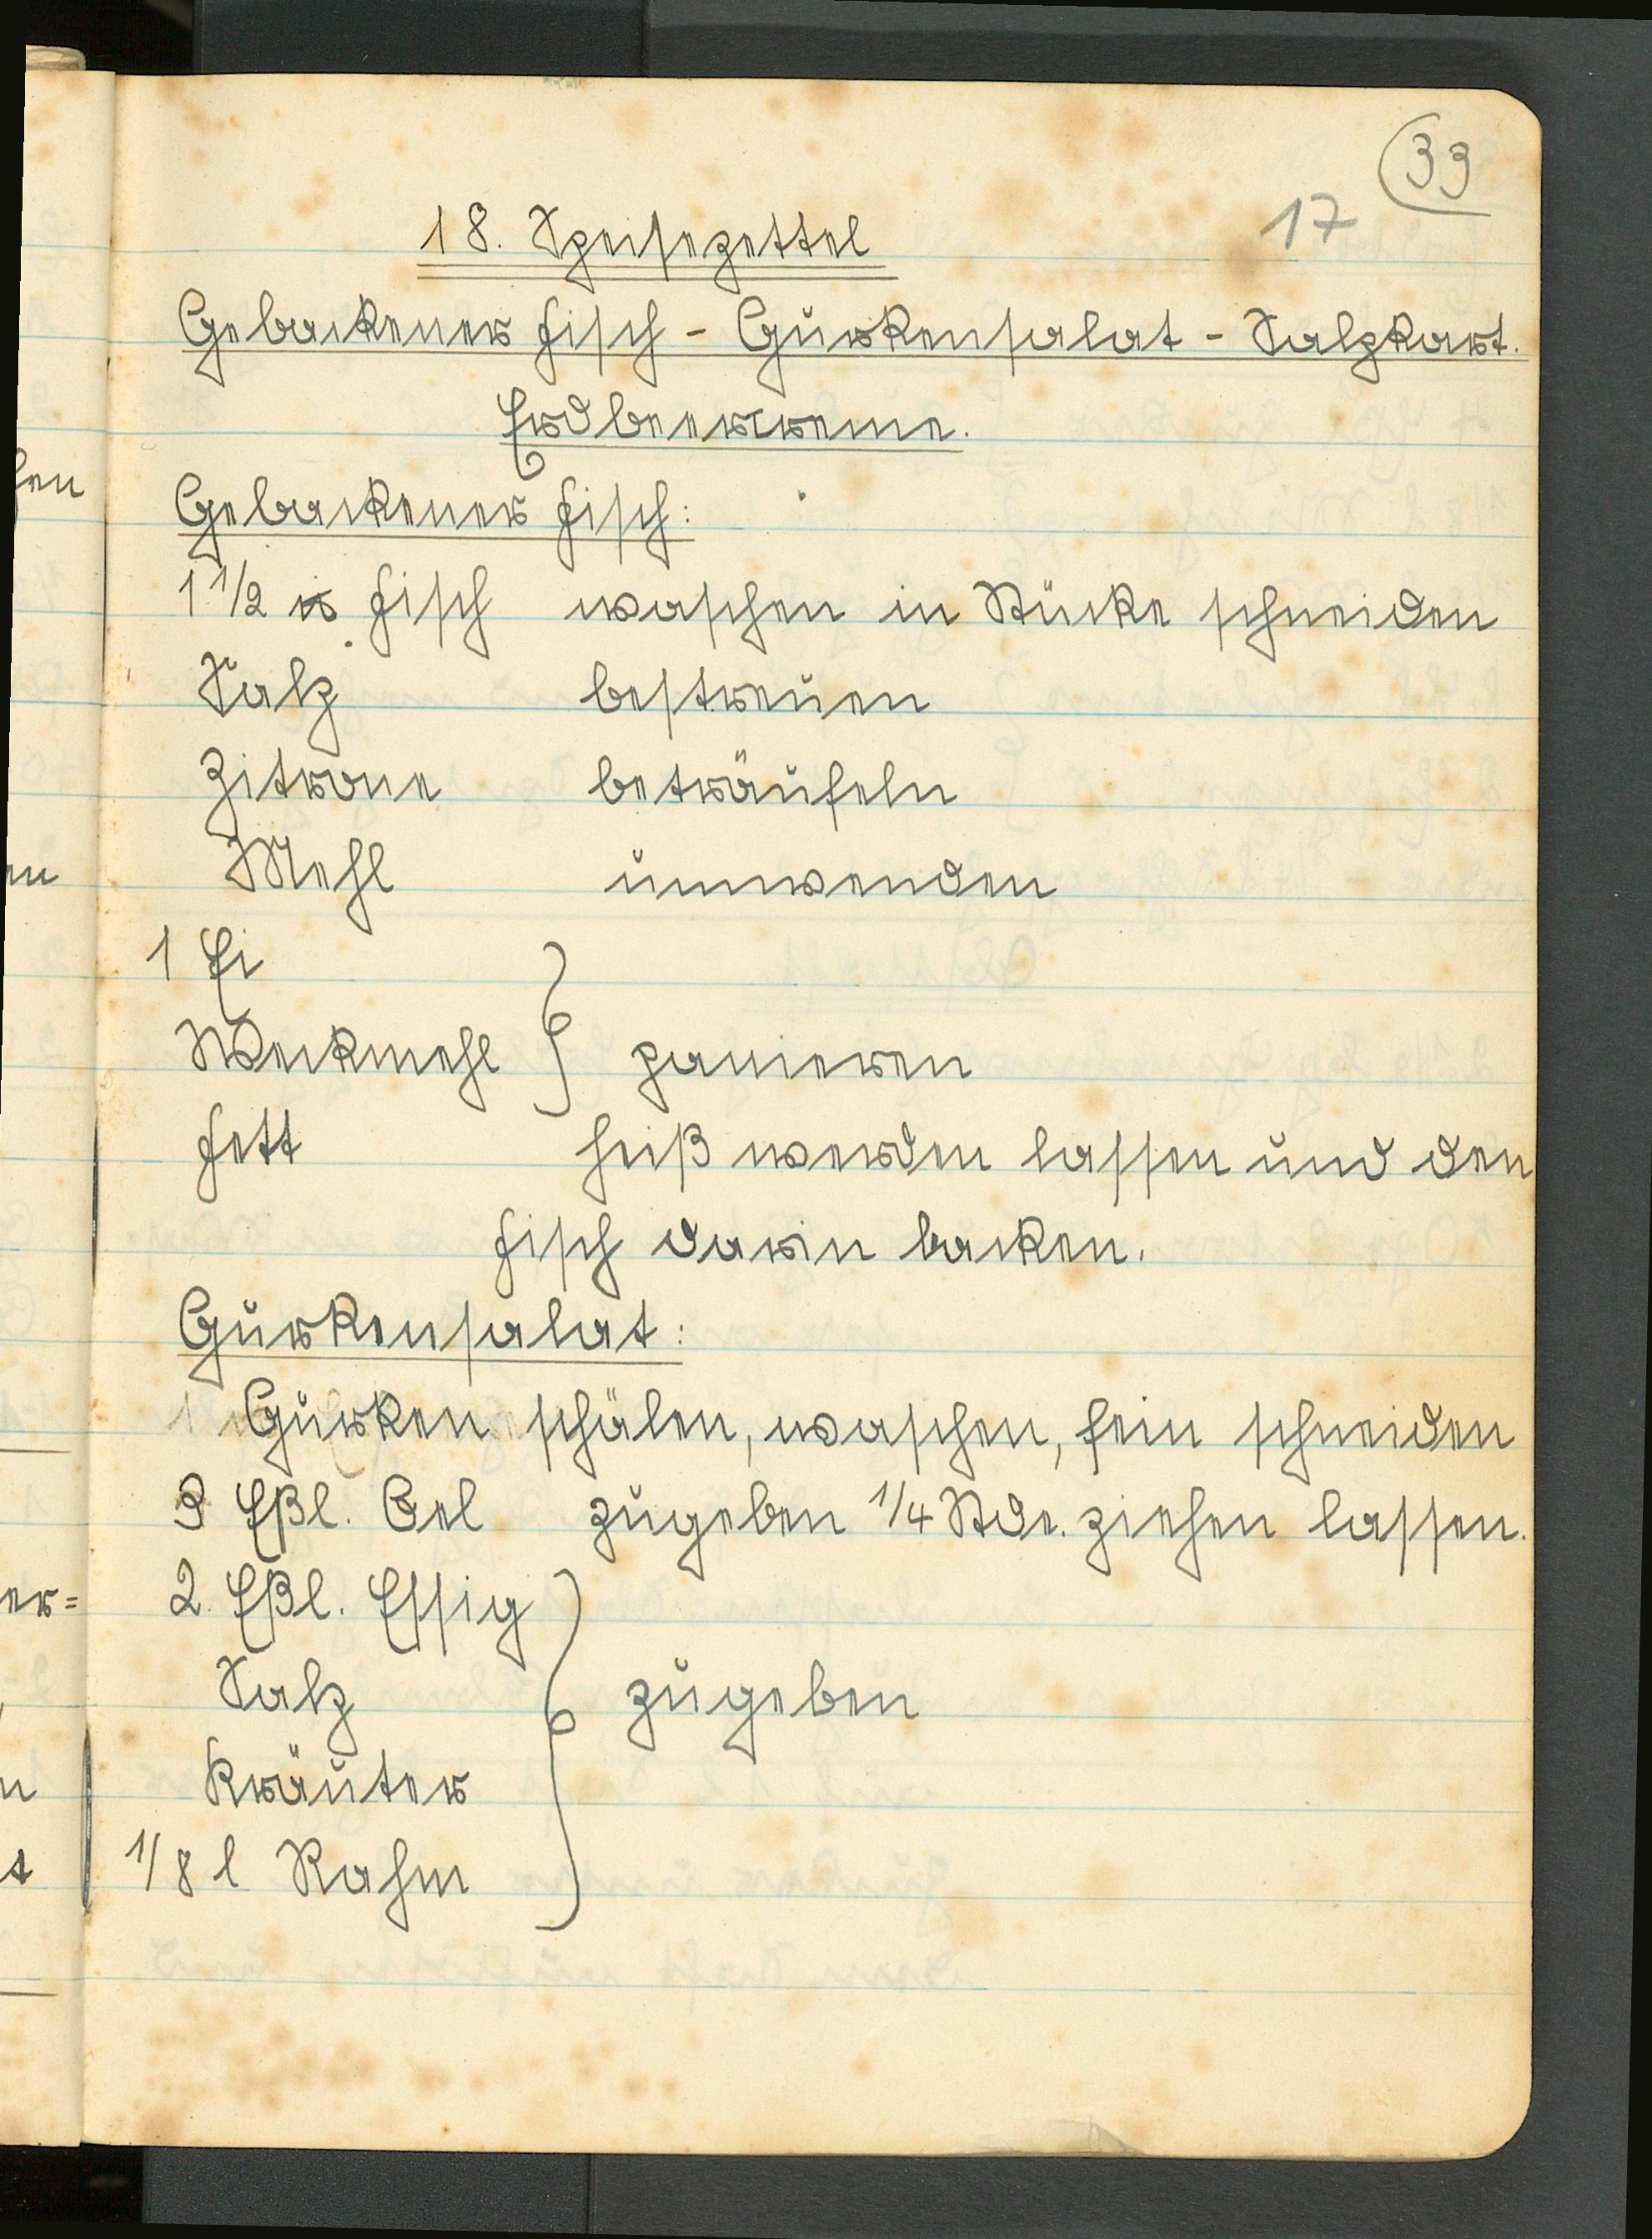 33
17
18. Speisezettel
Gebackener Fisch - Gurkensalat - Salzkart.
Erdbeercreme.
Gebackener Fisch:
1 1/2 ℔ Fisch waschen in Stücke schneiden
Salz bestreuen
Zitrone beträufeln
Mehl umwenden
1 Ei
Weckmehl } panieren
Fett heiß werden lassen und den
Fisch darin backen.
Gurkensalat:
1 Gurken schälen, waschen, fein schneiden
3 Eßl. Oel zugeben 1/4 Stde. ziehen lassen.
2. Eßl. Essig
Salz } zugeben
Kräuter
1/8 l Rahm
en
er=